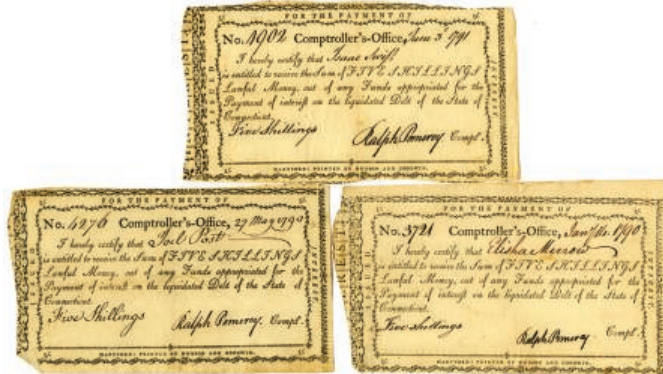 FOR THE PAYMENT OF
No. 4902 Comptroller's-Office, June 3 1791
I hereby certify that Isaac Swift
is entitled to receive the Sum of FIVE SHILLINGS
Lawful Money, out of any Funds appropriated for the
Payment of interest on the liquidated Debt of the State of
Connecticut.
Five Shillings Ralph Pomeroy Compt.
HARTFORD: PRINTED BY HUDSON AND GOODWIN.
FOR THE PAYMENT OF
No. 4276 Comptroller's-Office, 27 May 1790
I hereby certify that Joel Post
is entitled to receive the Sum of FIVE SHILLINGS
Lawful Money, out of any Funds appropriated for the
Payment of interest on the liquidated Debt of the State of
Connecticut.
Five Shillings Ralph Pomeroy. Compt.
HARTFORD: PRINTED BY HUDSON AND GOODWIN.
FOR THE PAYMENT OF
No. 3721 Comptroller's-Office, 1790
I hereby certify that Elisha Merrow
is entitled to receive the Sum of FIVE SHILLINGS
Lawful Money, out of any Funds appropriated for the
Payment of interest on the liquidated Debt of the State of
Connecticut.
Five shillings Ralph Pomeroy Compt.
HARTFORD: PRINTED BY HUDSON AND GOODWIN.